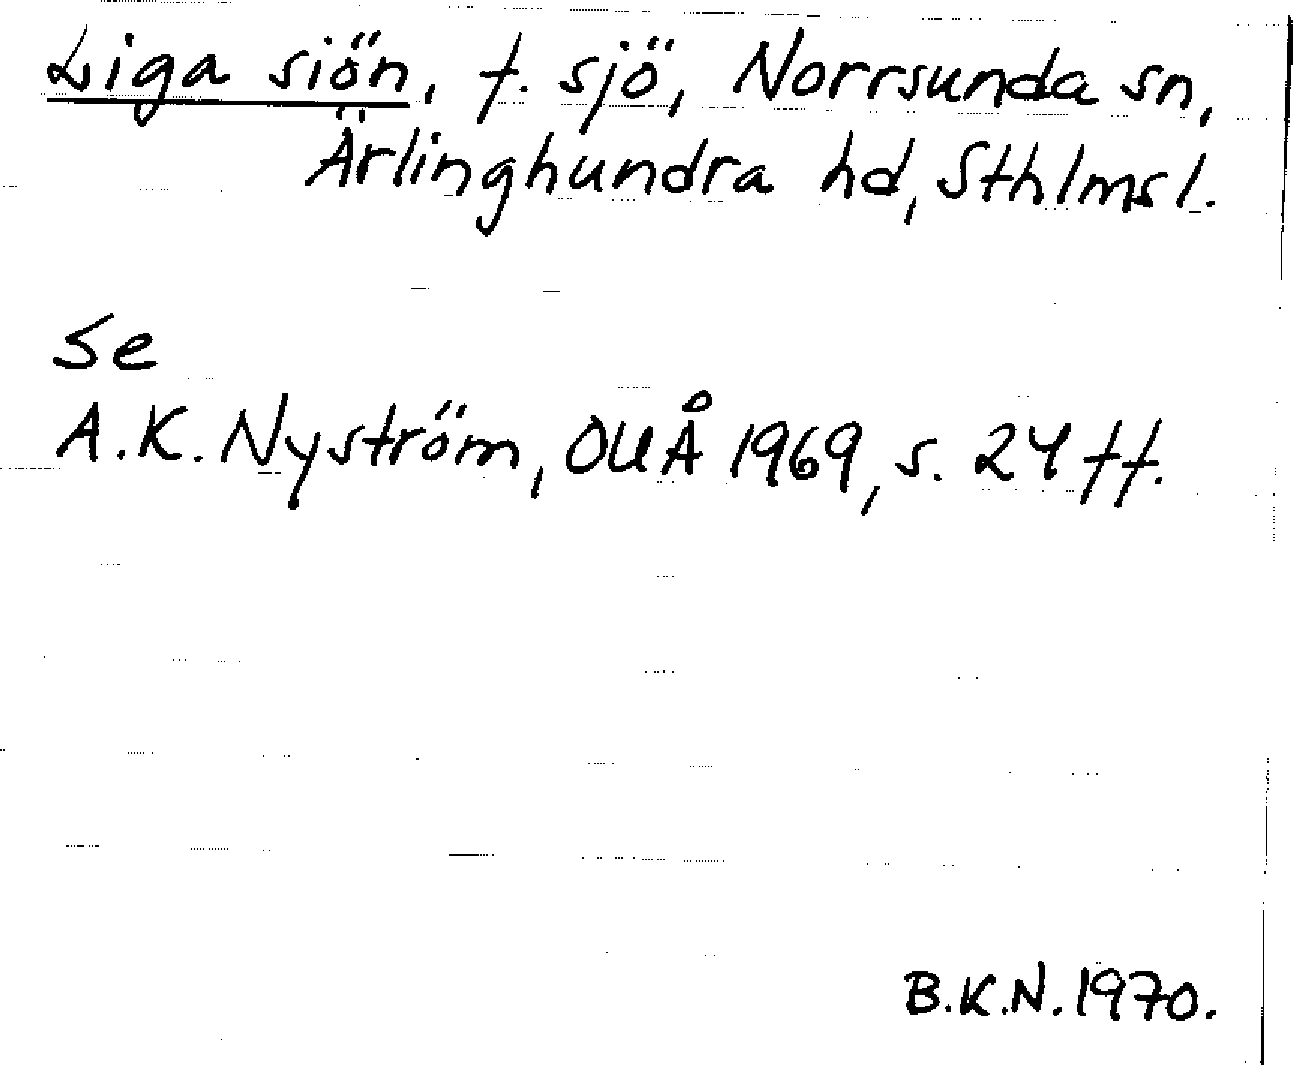 Liga siön, f. sjö, Norrsunda sn,
Ärlinghundra hd, Sthlms l.
Se
A.K. Nyström, OUÅ 1969, s. 24 ff.
B.K.N. 1970.